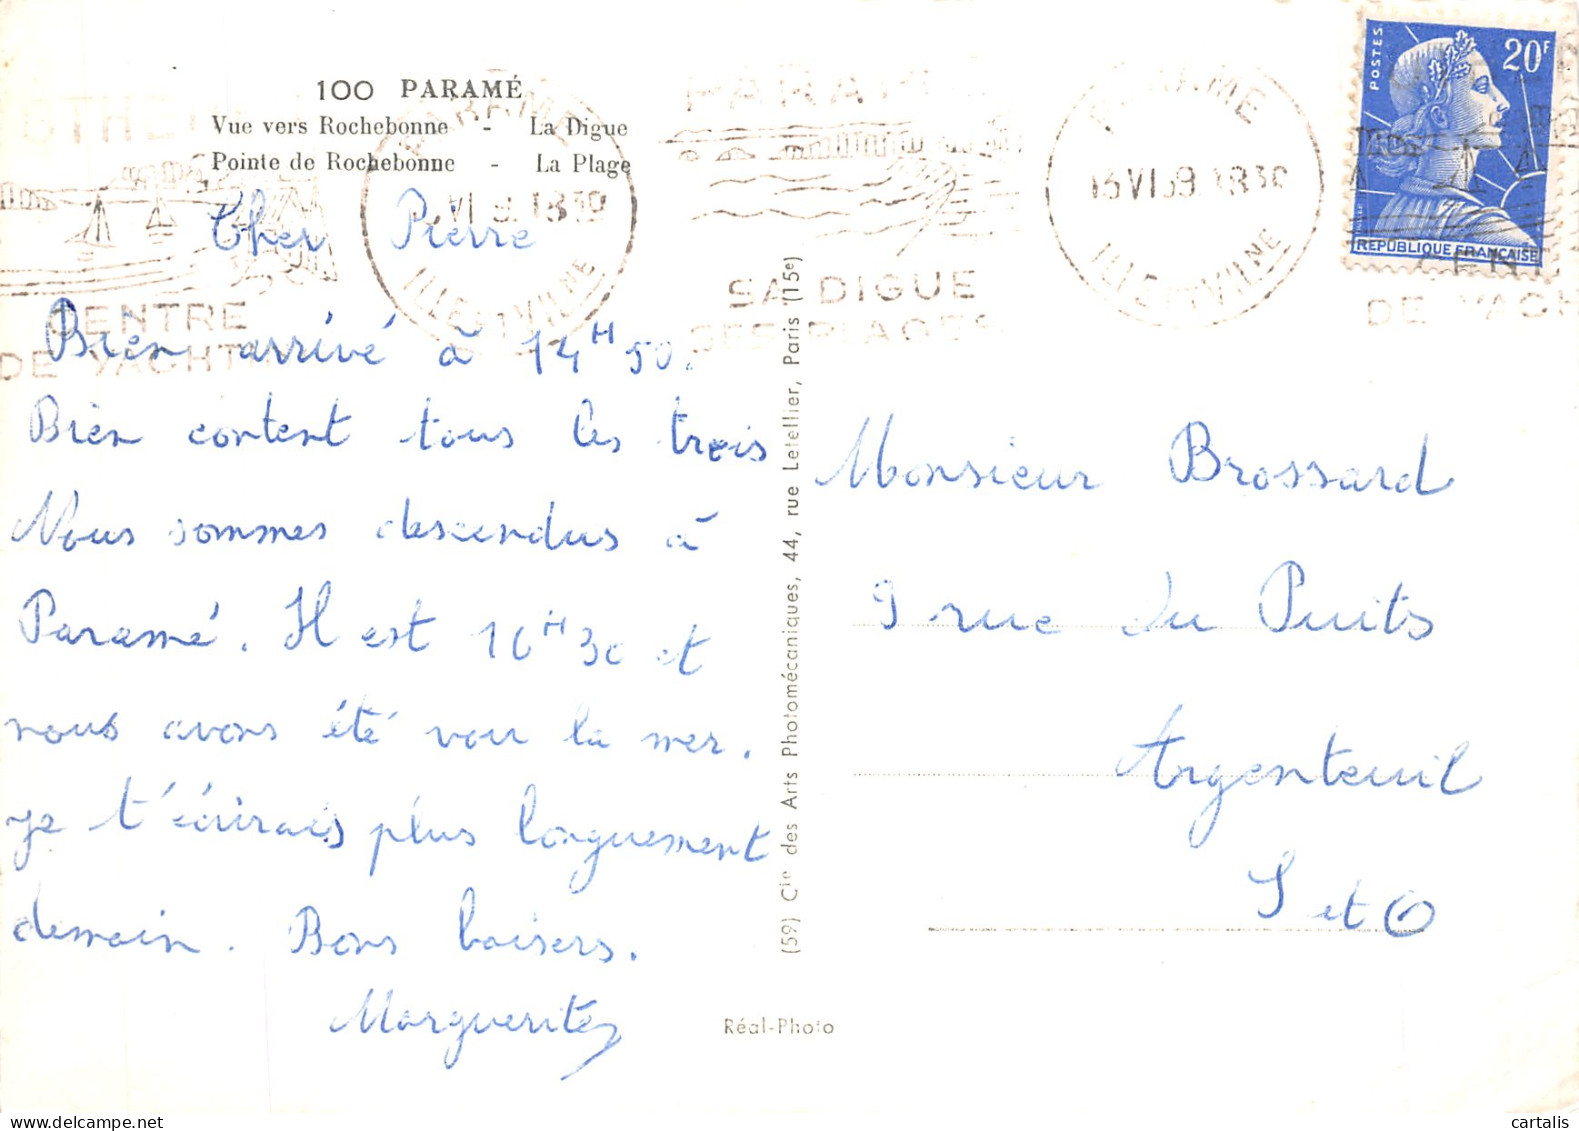 100 PARAMÉ
Vue vers Rochebonne - La Digue
Pointe de Rochebonne - La Plage
Cher Pierre
Bien arrivé à 14H50.
Bien content tous les trois
Nous sommes descendus à
Paramé. Il est 16H30 et
nous avons été voir la mer.
je t'écirais plus longuement
demain. Bons baisers.
Marguerite
(59) Cie des Arts Photomécaniques, 44, rue Letellier, Paris (15e)
Réal-Photo
PARAMÉ
SA DIGUE
SES PLAGES
PARAMÉ
13 VI 59 1830
ILLE ET VILNE
CENTRE
DE YACHTING
POSTES
20F
REPUBLIQUE FRANÇAISE
Monsieur Brossard
9 rue du Puits
Argenteuil
S et O
cartalis